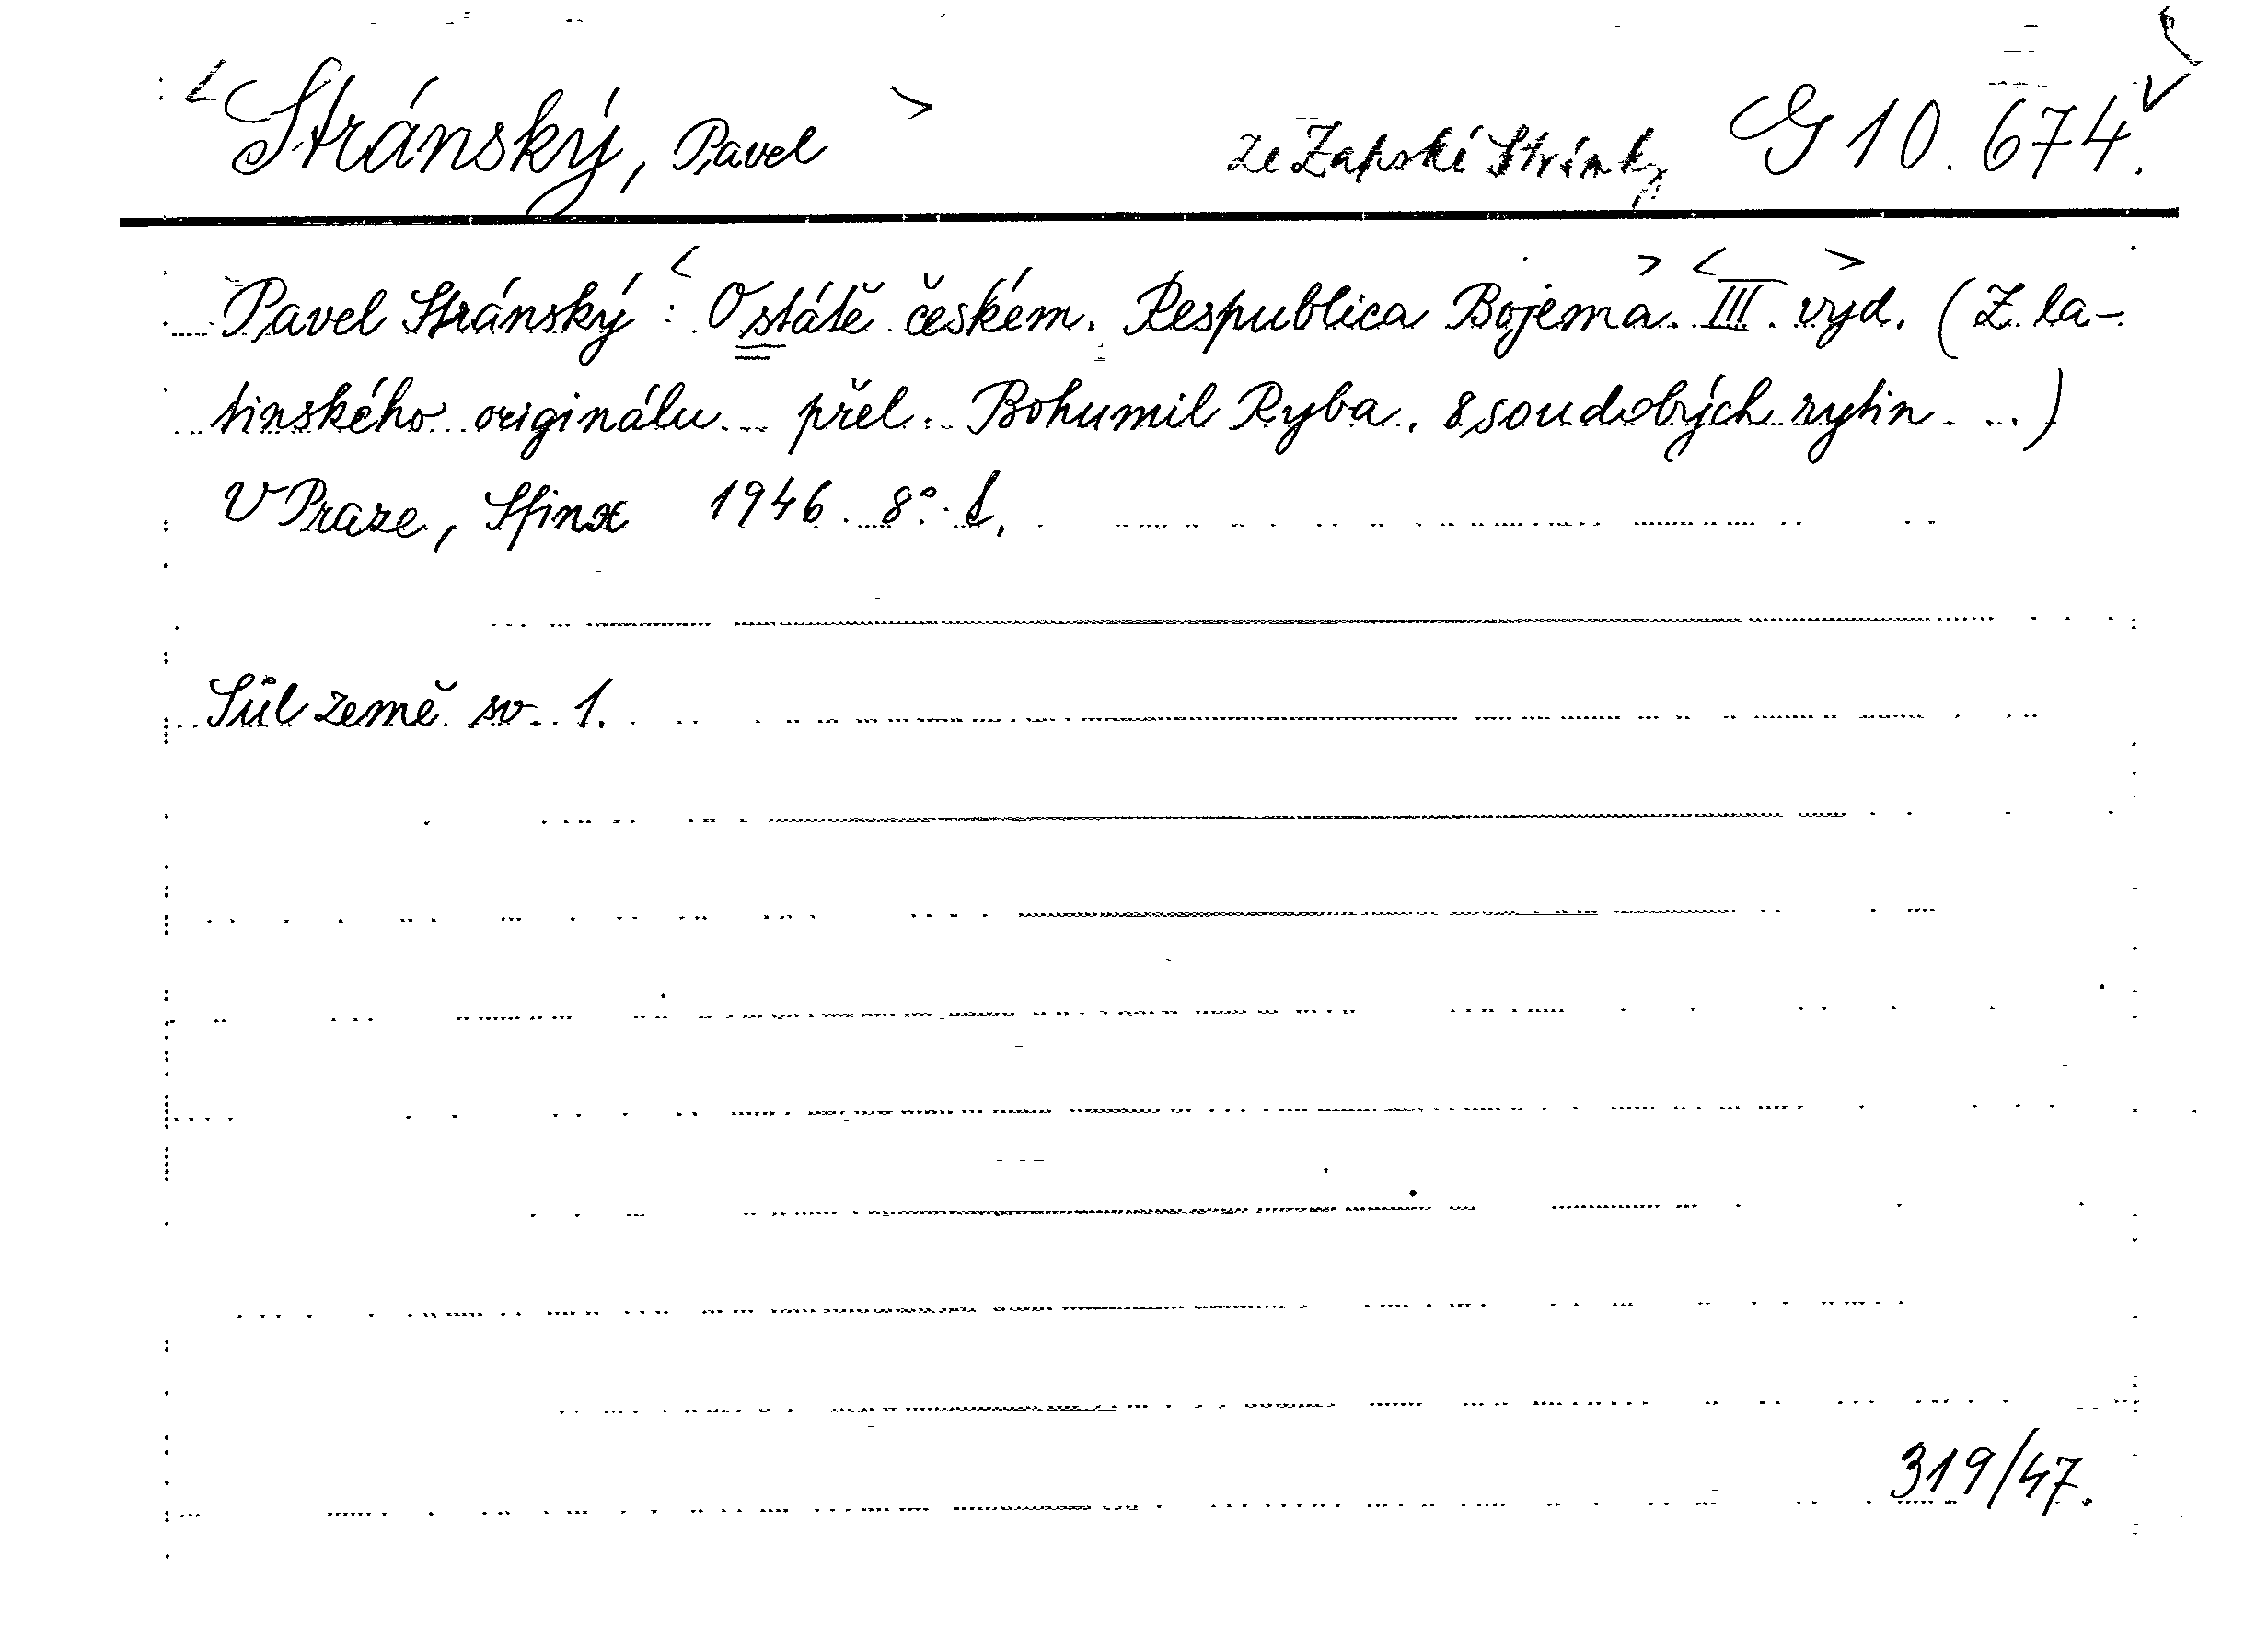 < Stránský, Pavel > ze Zapské Stránky G 10.674.
Pavel Stránský : < O státě českém. Respublica Bojema. > < III. vyd. > (Z la-
tinského originálu přel. Bohumil Ryba. 8 soudobých rytin...)
V Praze, Sfinx 1946. 8°.
Sůl země sv. 1.
319/47.